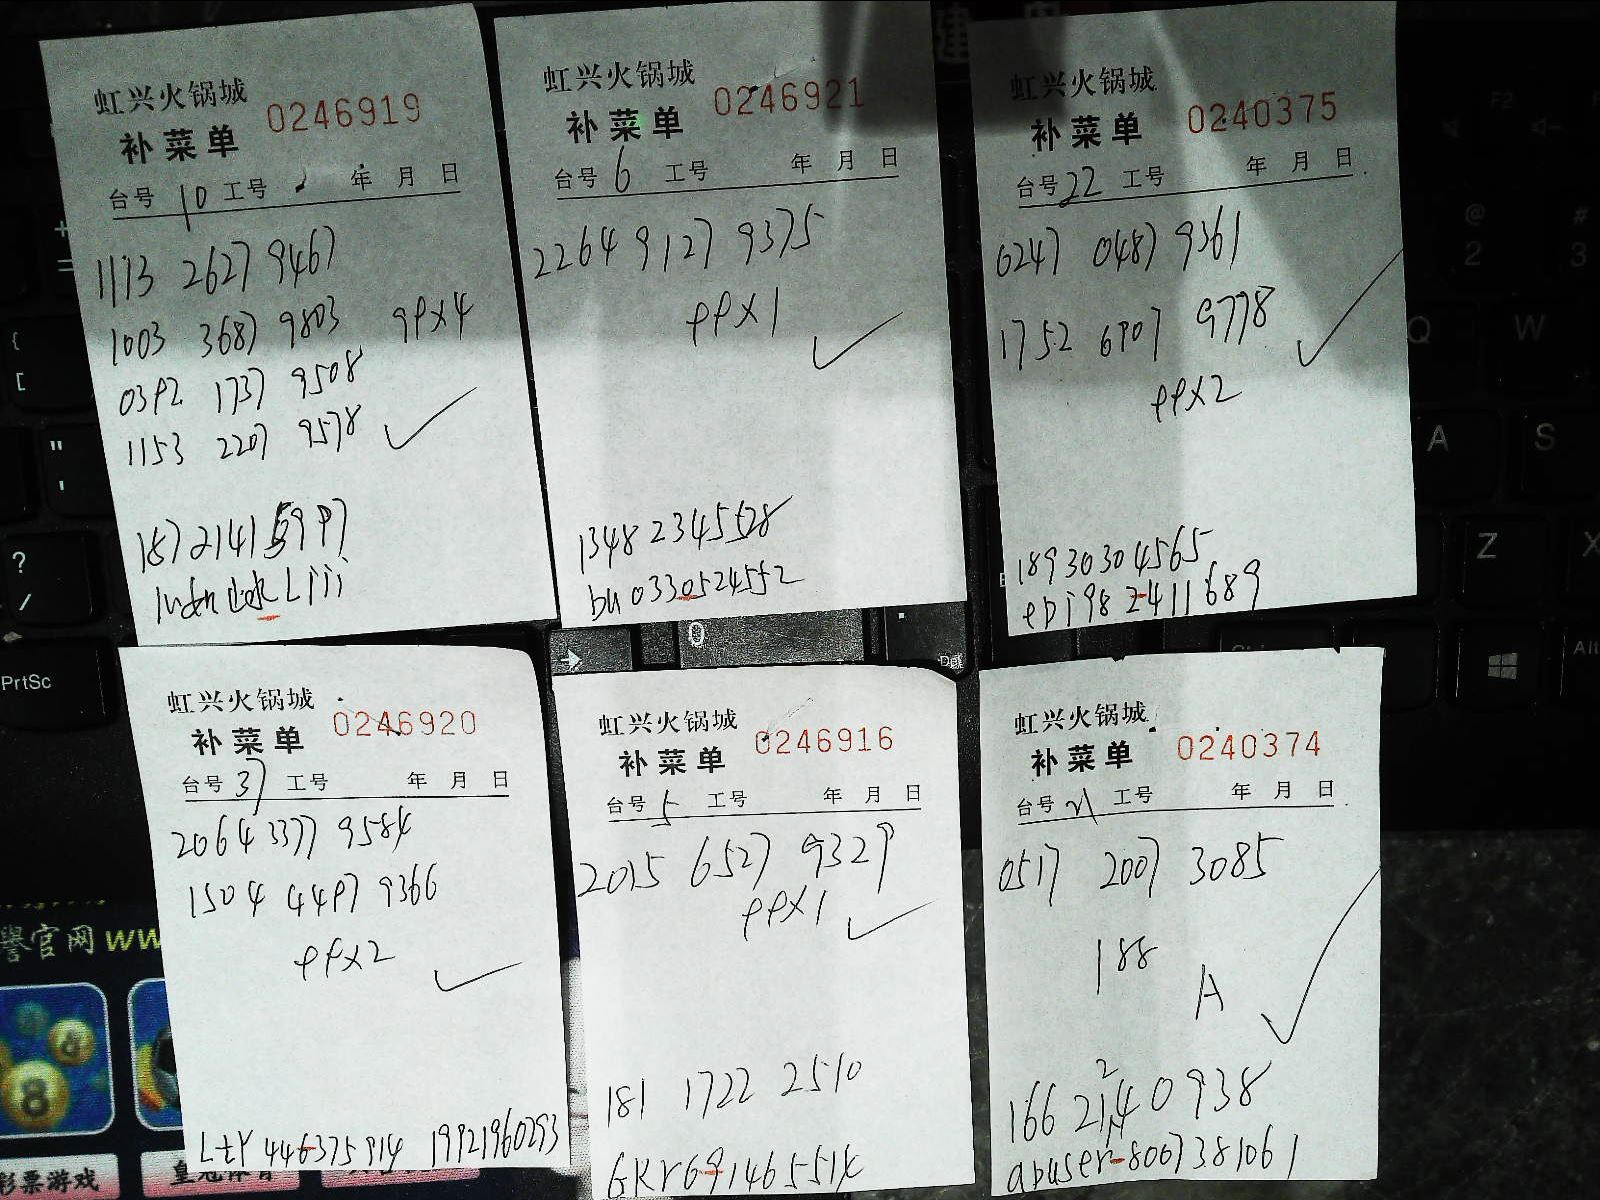 虹兴火锅城
补菜单 0246919
台号 10 工号 年 月 日
1113 2627 9467
1003 3687 9803 PPX4
0392 1737 9508
1153 2207 9578
187 2141 5997
虹兴火锅城
补菜单 0246921
台号 6 工号 年 月 日
2264 9127 9375
PPX1
1348 2345528
bu0330524552
虹兴火锅城
补菜单 0240375
台号 22 工号 年 月 日
0247 0487 9361
1752 6907 9778
PPX2
18930304565
epi982411689
虹兴火锅城
补菜单 0246920
台号 37 工号 年 月 日
2064 3377 9584
1504 4497 9366
PPX2
LtY446375914 19921960293
虹兴火锅城
补菜单 0246916
台号 5 工号 年 月 日
2015 6527 9329
PPX1
181 1722 2510
GKY69146551X
虹兴火锅城
补菜单 0240374
台号 21 工号 年 月 日
0517 2007 3085
188
A
166 2124 0938
abuser-8007381061
誉官网 WW
彩票游戏
皇冠体育
PrtSc
Q
W
A
S
Z
X
Alt
Del
0
F2
@
2
#
3
?
/
"
'
{
[
+
=